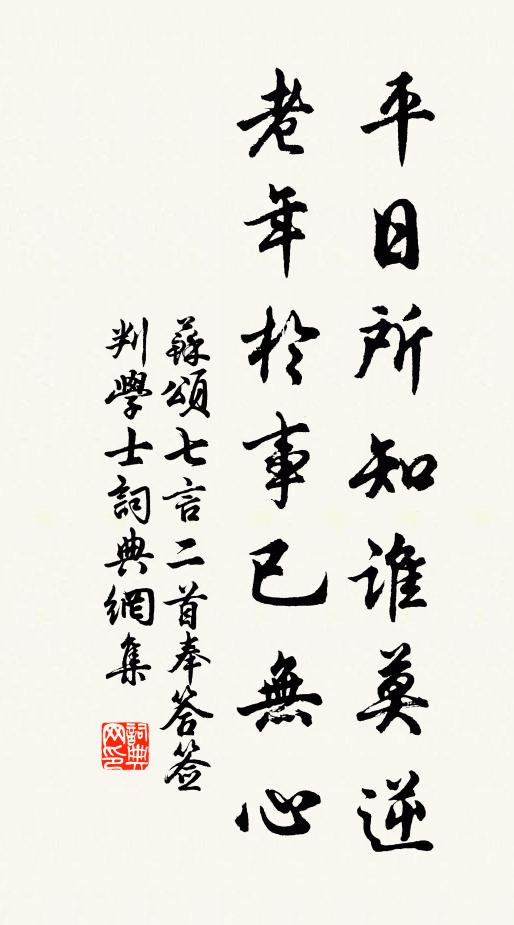 平日所知誰莫逆
老年於事已無心
蘇頌七言二首奉答签
判學士詞典網集
詞典
网印